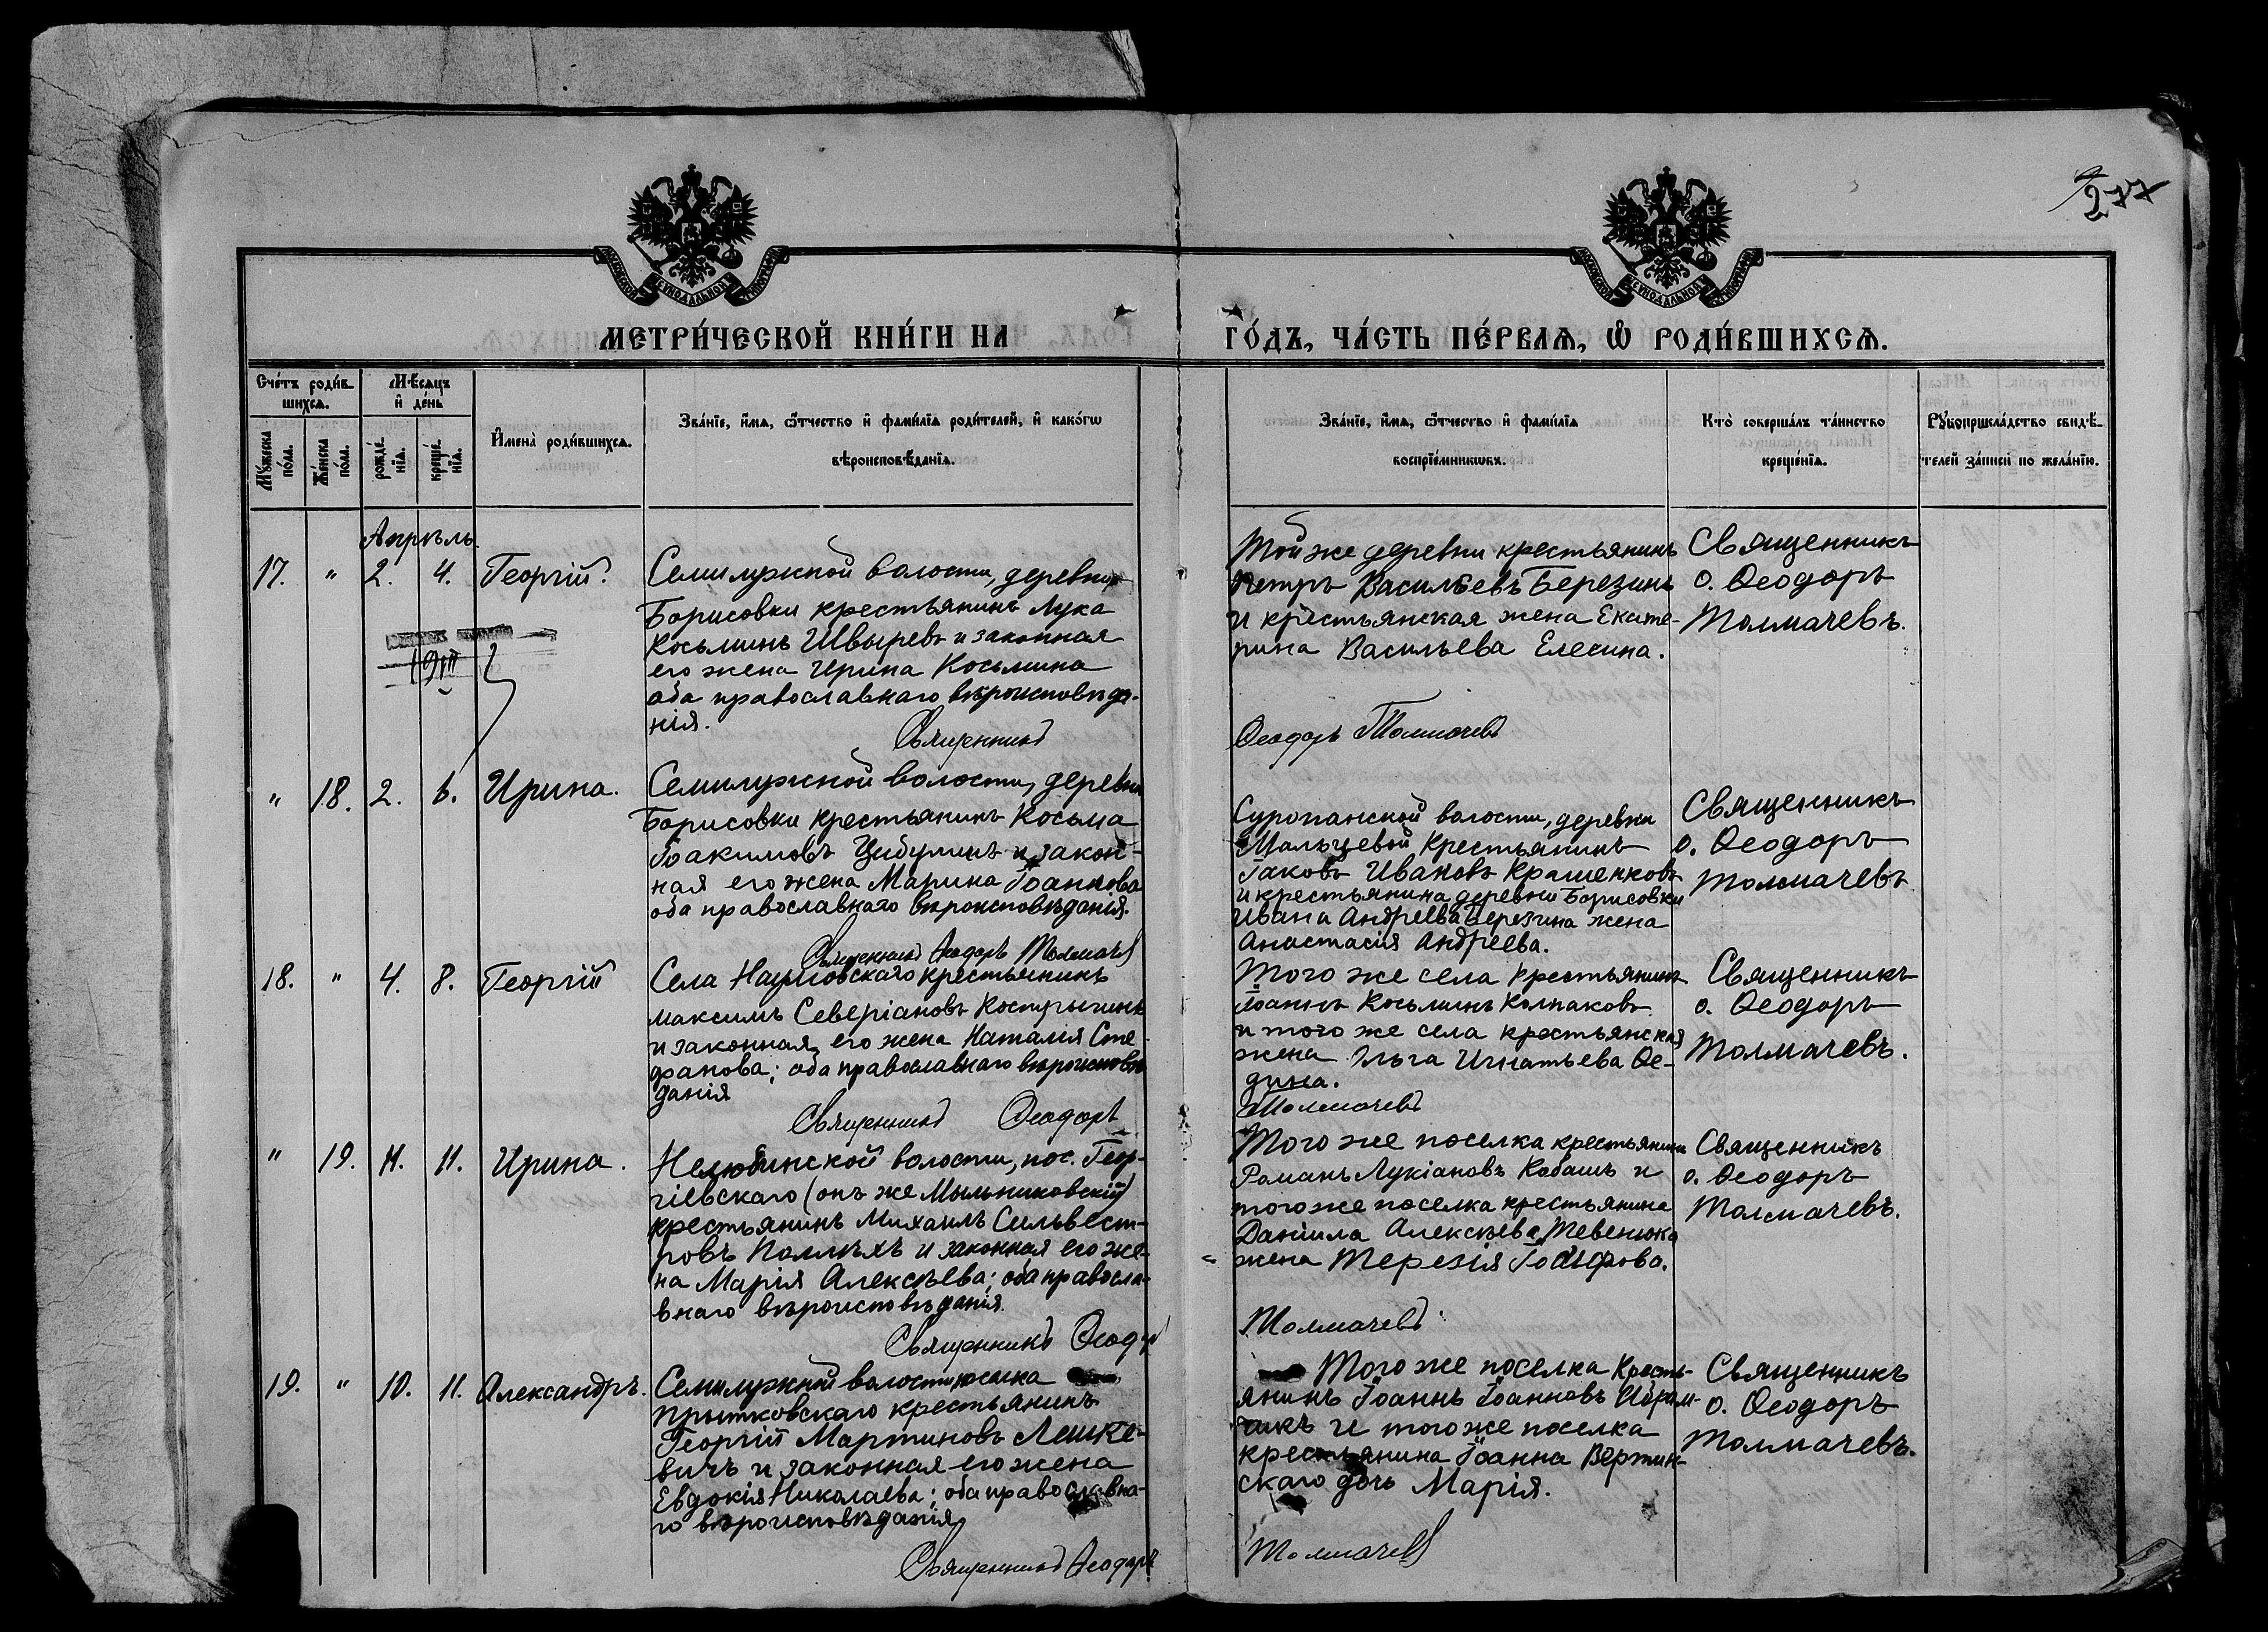 277
МЕТРИ́ЧЕСКОЙ КНИ́ГИ НА ГО́ДЪ, ЧА́СТЬ ПЕ́РВАѦ, Ѡ҆ РОДИ́ВШИХСѦ.
Сче́тъ роди́в-
шихсѧ.
Мꙋ́жеска
по́ла.
Же́нска
по́ла.
Мѣ́сѧцъ
и҆ де́нь
рожде́-
нїѧ.
креще́-
нїѧ.
И҆мена̀ роди́вшихсѧ.
Зва́нїе, и҆́мѧ, ѻ҆́тчество и҆ фами́лїѧ роди́телей, и҆ како́гѡ
вѣроисповѣ́данїѧ.
Зва́нїе, и҆́мѧ, ѻ҆́тчество и҆ фами́лїѧ
воспрїе́мникѡвъ.
Кто̀ соверша́лъ та́инство
креще́нїѧ.
Рꙋкоприкла́дство свидѣ́-
телей за́писи по жела́нїю.
Апрѣль.
17. " 2. 4. Георгій.
Семилужной волости, деревни
Борисовки крестьянинъ Лука
Косьминъ Швыревъ и законная
его жена Ирина Косьмина
оба православнаго вѣроисповѣда-
нія.
Священникъ
Той же деревни крестьянинъ
Петръ Васильевъ Березинъ
и крестьянская жена Екате-
рина Васильева Елесина.
Ѳеодоръ Толмачевъ
Священникъ
о. Ѳеодоръ
Толмачевъ.
" 18. 2. 6. Ирина.
Семилужной волости, деревни
Борисовки крестьянинъ Косьма
Іоакимовъ Цибулинъ и закон-
ная его жена Марина Іоаннова
оба православнаго вѣроисповѣданія.
Священникъ Ѳеодоръ Толмачевъ
волости, деревни
Мальцевой крестьянинъ
Іаковъ Ивановъ Крашенковъ
и крестьянина деревни Борисовки
Ивана Андреева Березина жена
Анастасія Андреева.
Священникъ
о. Ѳеодоръ
Толмачевъ
18. " 4. 8. Георгій
Села Наумовскаго крестьянинъ
Максимъ Северіановъ Кострыкинъ
и законная его жена Наталія Сте-
фанова; оба православнаго вѣроисповѣ-
данія
Священникъ Ѳеодоръ
Того же села крестьянинъ
Іоаннъ Косьминъ Колпаковъ
и того же села крестьянская
жена Ольга Игнатьева Ѳе-
дина.
Толмачевъ
Священникъ
о. Ѳеодоръ
Толмачевъ.
" 19. 11. Ирина.
Нелюбинской волости, пос. Геор-
гіевскаго (онъ же Мыльниковскій)
крестьянинъ Михаилъ Сильвест-
ровъ и законная его же-
на Марія Алексѣева; оба правосла-
внаго вѣроисповѣданія.
Священникъ Ѳеодоръ
Того же поселка крестьянинъ
Романъ Лукіановъ Кабашъ и
того же поселка крестьянина
Даніила Алексѣева Тевенюка
жена Терезія
Толмачевъ
Священникъ
о. Ѳеодоръ
Толмачевъ.
19. " 10. 11. Александръ.
Семилужной волости поселка
Прытковскаго крестьянинъ
Георгій Мартиновъ Лешке-
вичъ и законная его жена
Евдокія Николаева; оба православна-
го вѣроисповѣданія
Священникъ Ѳеодоръ
Того же поселка кресть-
янинъ Іоаннъ Іоанновъ
и того же поселка
крестьянина Іоанна Вертин-
скаго дочь Марія.
Толмачевъ
Священникъ
о. Ѳеодоръ
Толмачевъ.